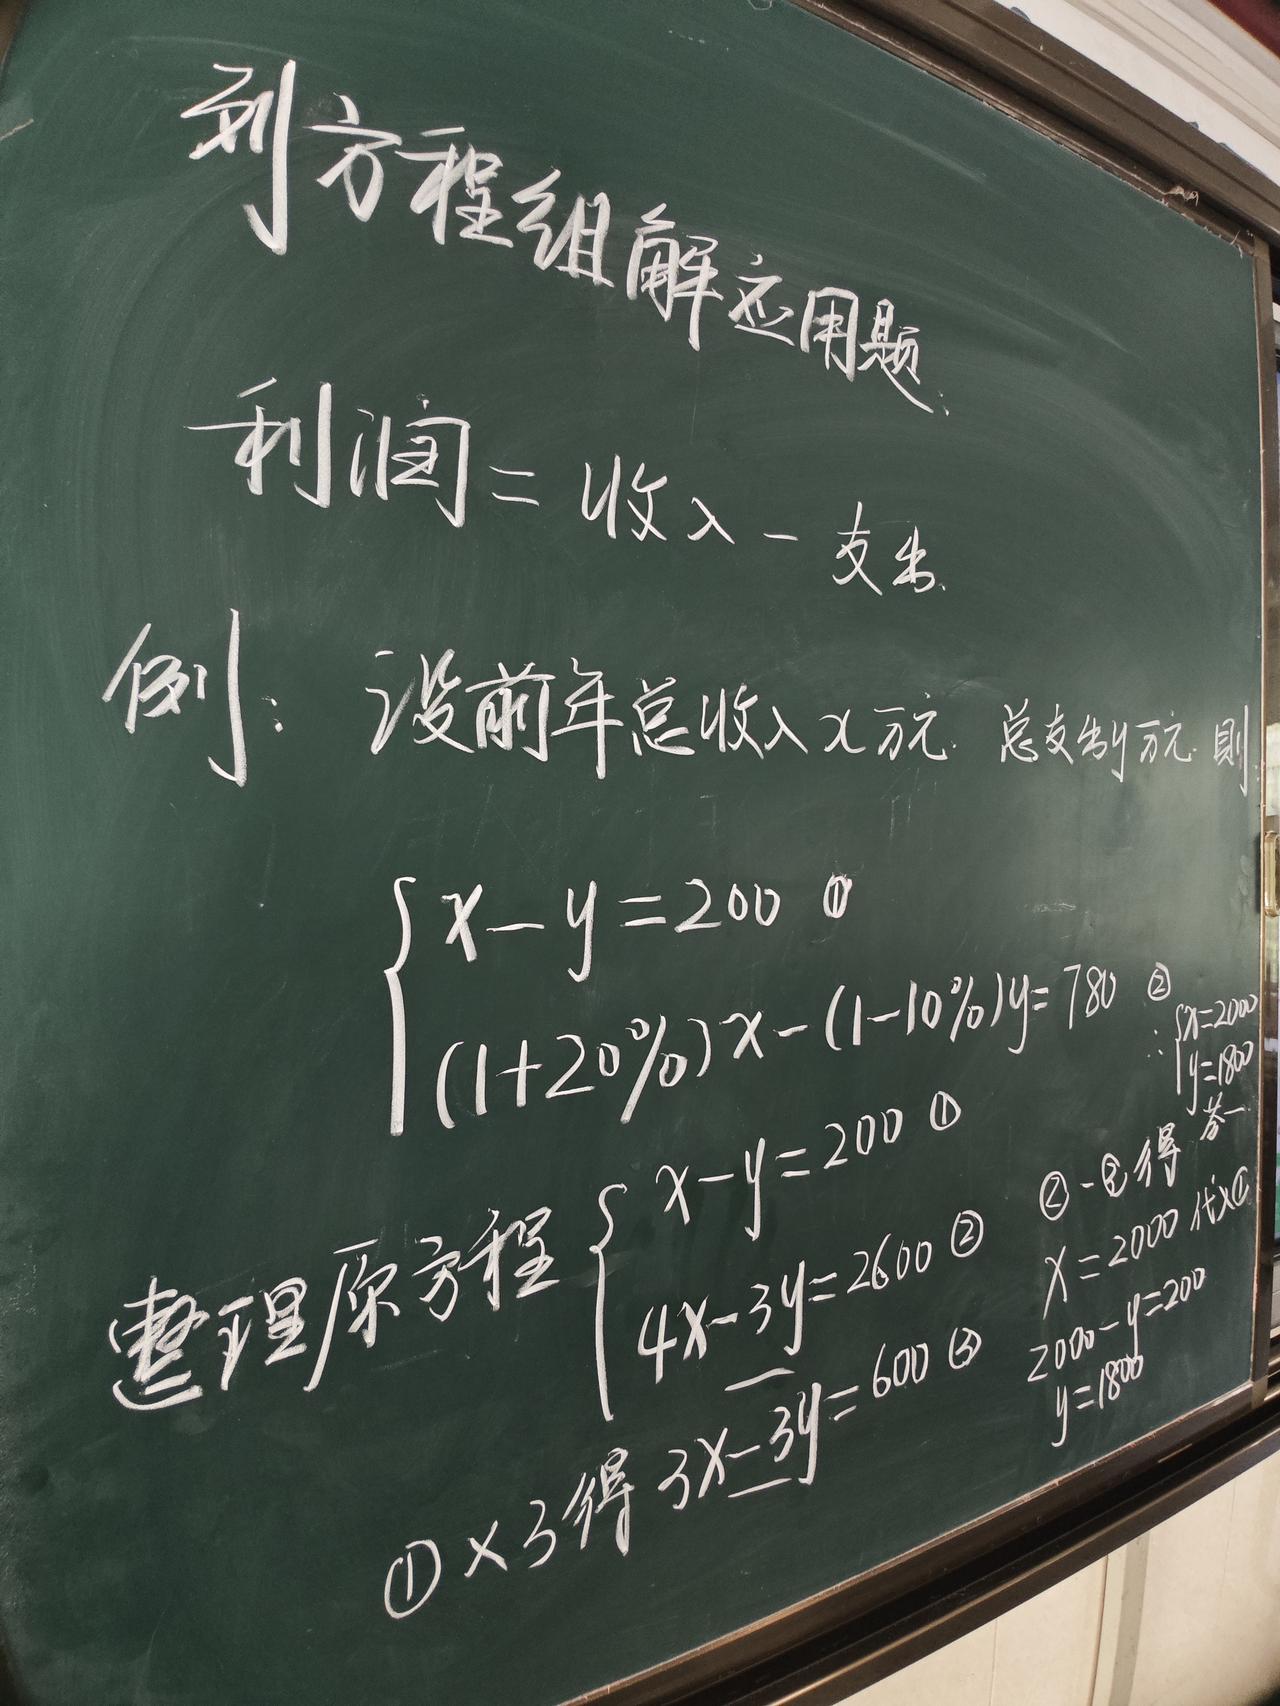 列方程组解应用题.
利润=收入-支出.
例: 设前年总收入x万元. 总支出y万元. 则:
x-y=200 ①
(1+20%)x-(1-10%)y=780 ②
整理原方程
x-y=200 ①
4x-3y=2600 ②
①×3得 3x-3y=600 ③
②-③得
x=2000 代入①
2000-y=200
y=1800
∴ x=2000
y=1800
答一